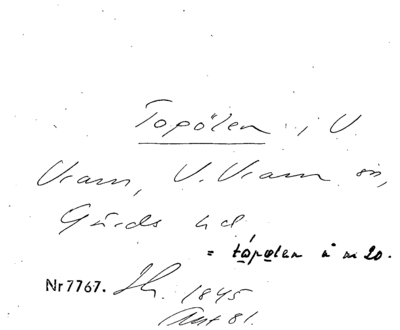 Topölen i V.
Vram, V. Vram sn,
Gärds hd
= tópolen å n 20.
Nr 7767. Sk. 1845
Ant 81.